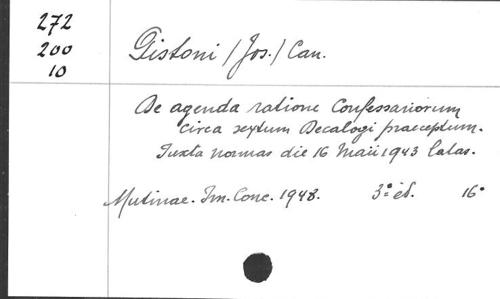 272
200
10
Pistoni /Jos./ Can.
De agenda ratione Confessariorum
circa sextum Decalogi praeceptum.
Juxta normas die 16 Maii 1943 latas.
Mutinae. Im. Conc. 1948. 3ª ed. 16º